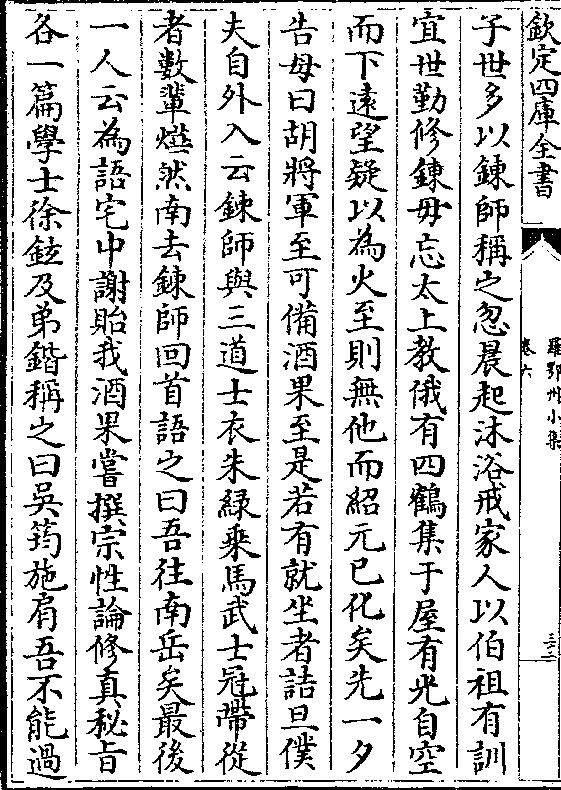 欽定四庫全書
羅鄂州小集
卷六
三十二
子世多以錬師稱之忽晨起沐浴戒家人以伯祖有訓
宜世勤修錬毋忘太上教俄有四鶴集于屋有光自空
而下遠望疑以為火至則無他而紹元已化矣先一夕
告母曰胡將軍至可備酒果至是若有就坐者詰旦僕
夫自外入云錬師與三道士衣朱緑乗馬武士冠帶從
者數輩爃然南去錬師回首語之曰吾往南岳矣最後
一人云為語宅中謝貽我酒果嘗撰宗性論修真秘旨
各一篇學士徐鉉及弟鍇稱之曰吳筠施肩吾不能過